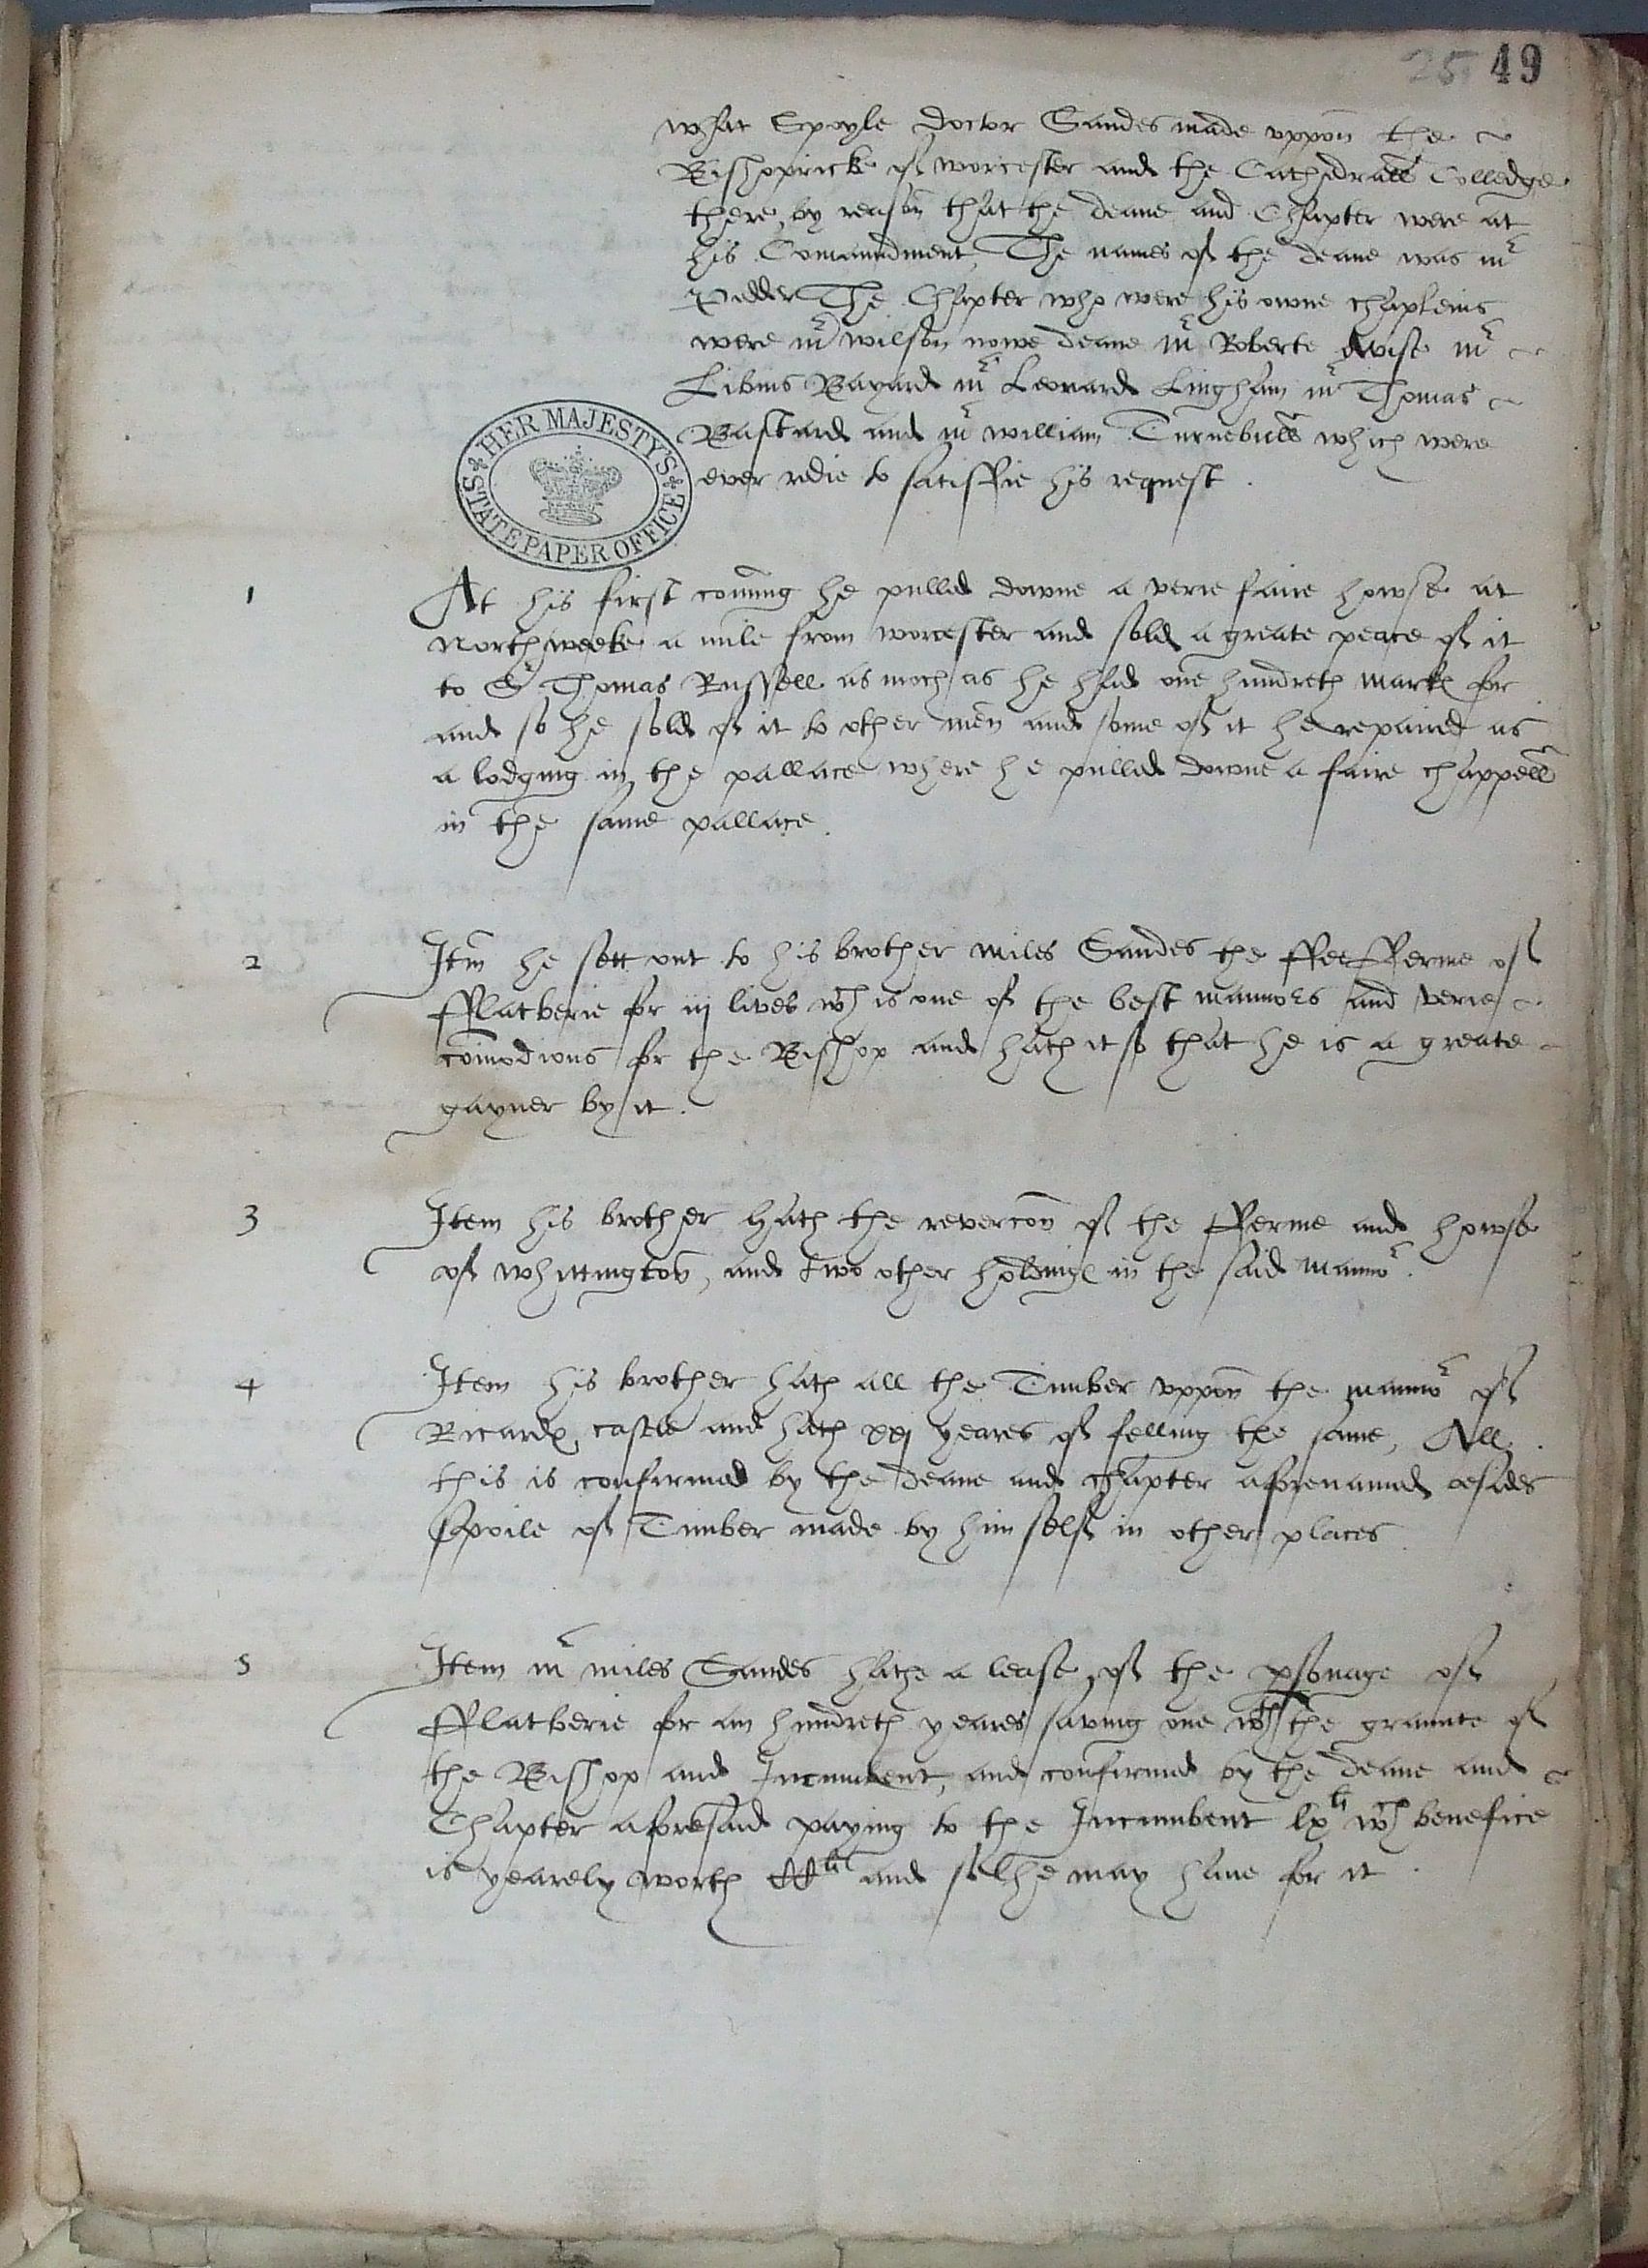 25 49
what Spoyle doctor Sandes made vppon the
Bishopricke of worcester and the Cathedrall Colledge
there, by reason that the deane and Chapter were at
his Comaundment, The names of the deane was mr
Pedder The Chapter who were his owne chapleins
were mr wilson nowe deane mr Roberte Avise mr
Libius Bayard mr Leonard Lingham mr Thomas
Bastard and mr william Turnebull which were
ever redie to satisffie his request.
HER MAJESTY'S
STATE PAPER OFFICE
1 At his first coming he pulled downe a verie faire howse at
Northweeke a mile from worcester and sold a greate peace of it
to Sr Thomas Russell as moch as he had one hundreth markes for
and so he sold of it to other men and some of it he repaired as
a lodging in the pallace where he pulled downe a faire chappell
in the same pallace.
2 Itm he sett out to his brother miles Sandes the ffee fferme of
fflatberie for iij lives wch is one of the best mannors and verie
comodious for the Bishop and hath it so that he is a greate
gayner by it.
3 Item his brother hath the revercon of the fferme and howse
of whittington, and two other holdinges in the said mannor.
4 Item his brother hath all the Timber vppon the mannor of
Ricardes castle and hath xxj yeares of felling the same, All
this is confirmed by the deane and chapter aforenamed besides
spoile of Timber made by him self in other places
5 Item mr miles Sandes hathe a lease of the psonage of
fflatberie for an hundreth yeares saving one wth the graunte of
the Bishop and Incumbent, and confirmed by the deane and
Chapter aforesaid paying to the Incumbent lxli wch benefice
is yearely worth CCli and so he may haue for it.